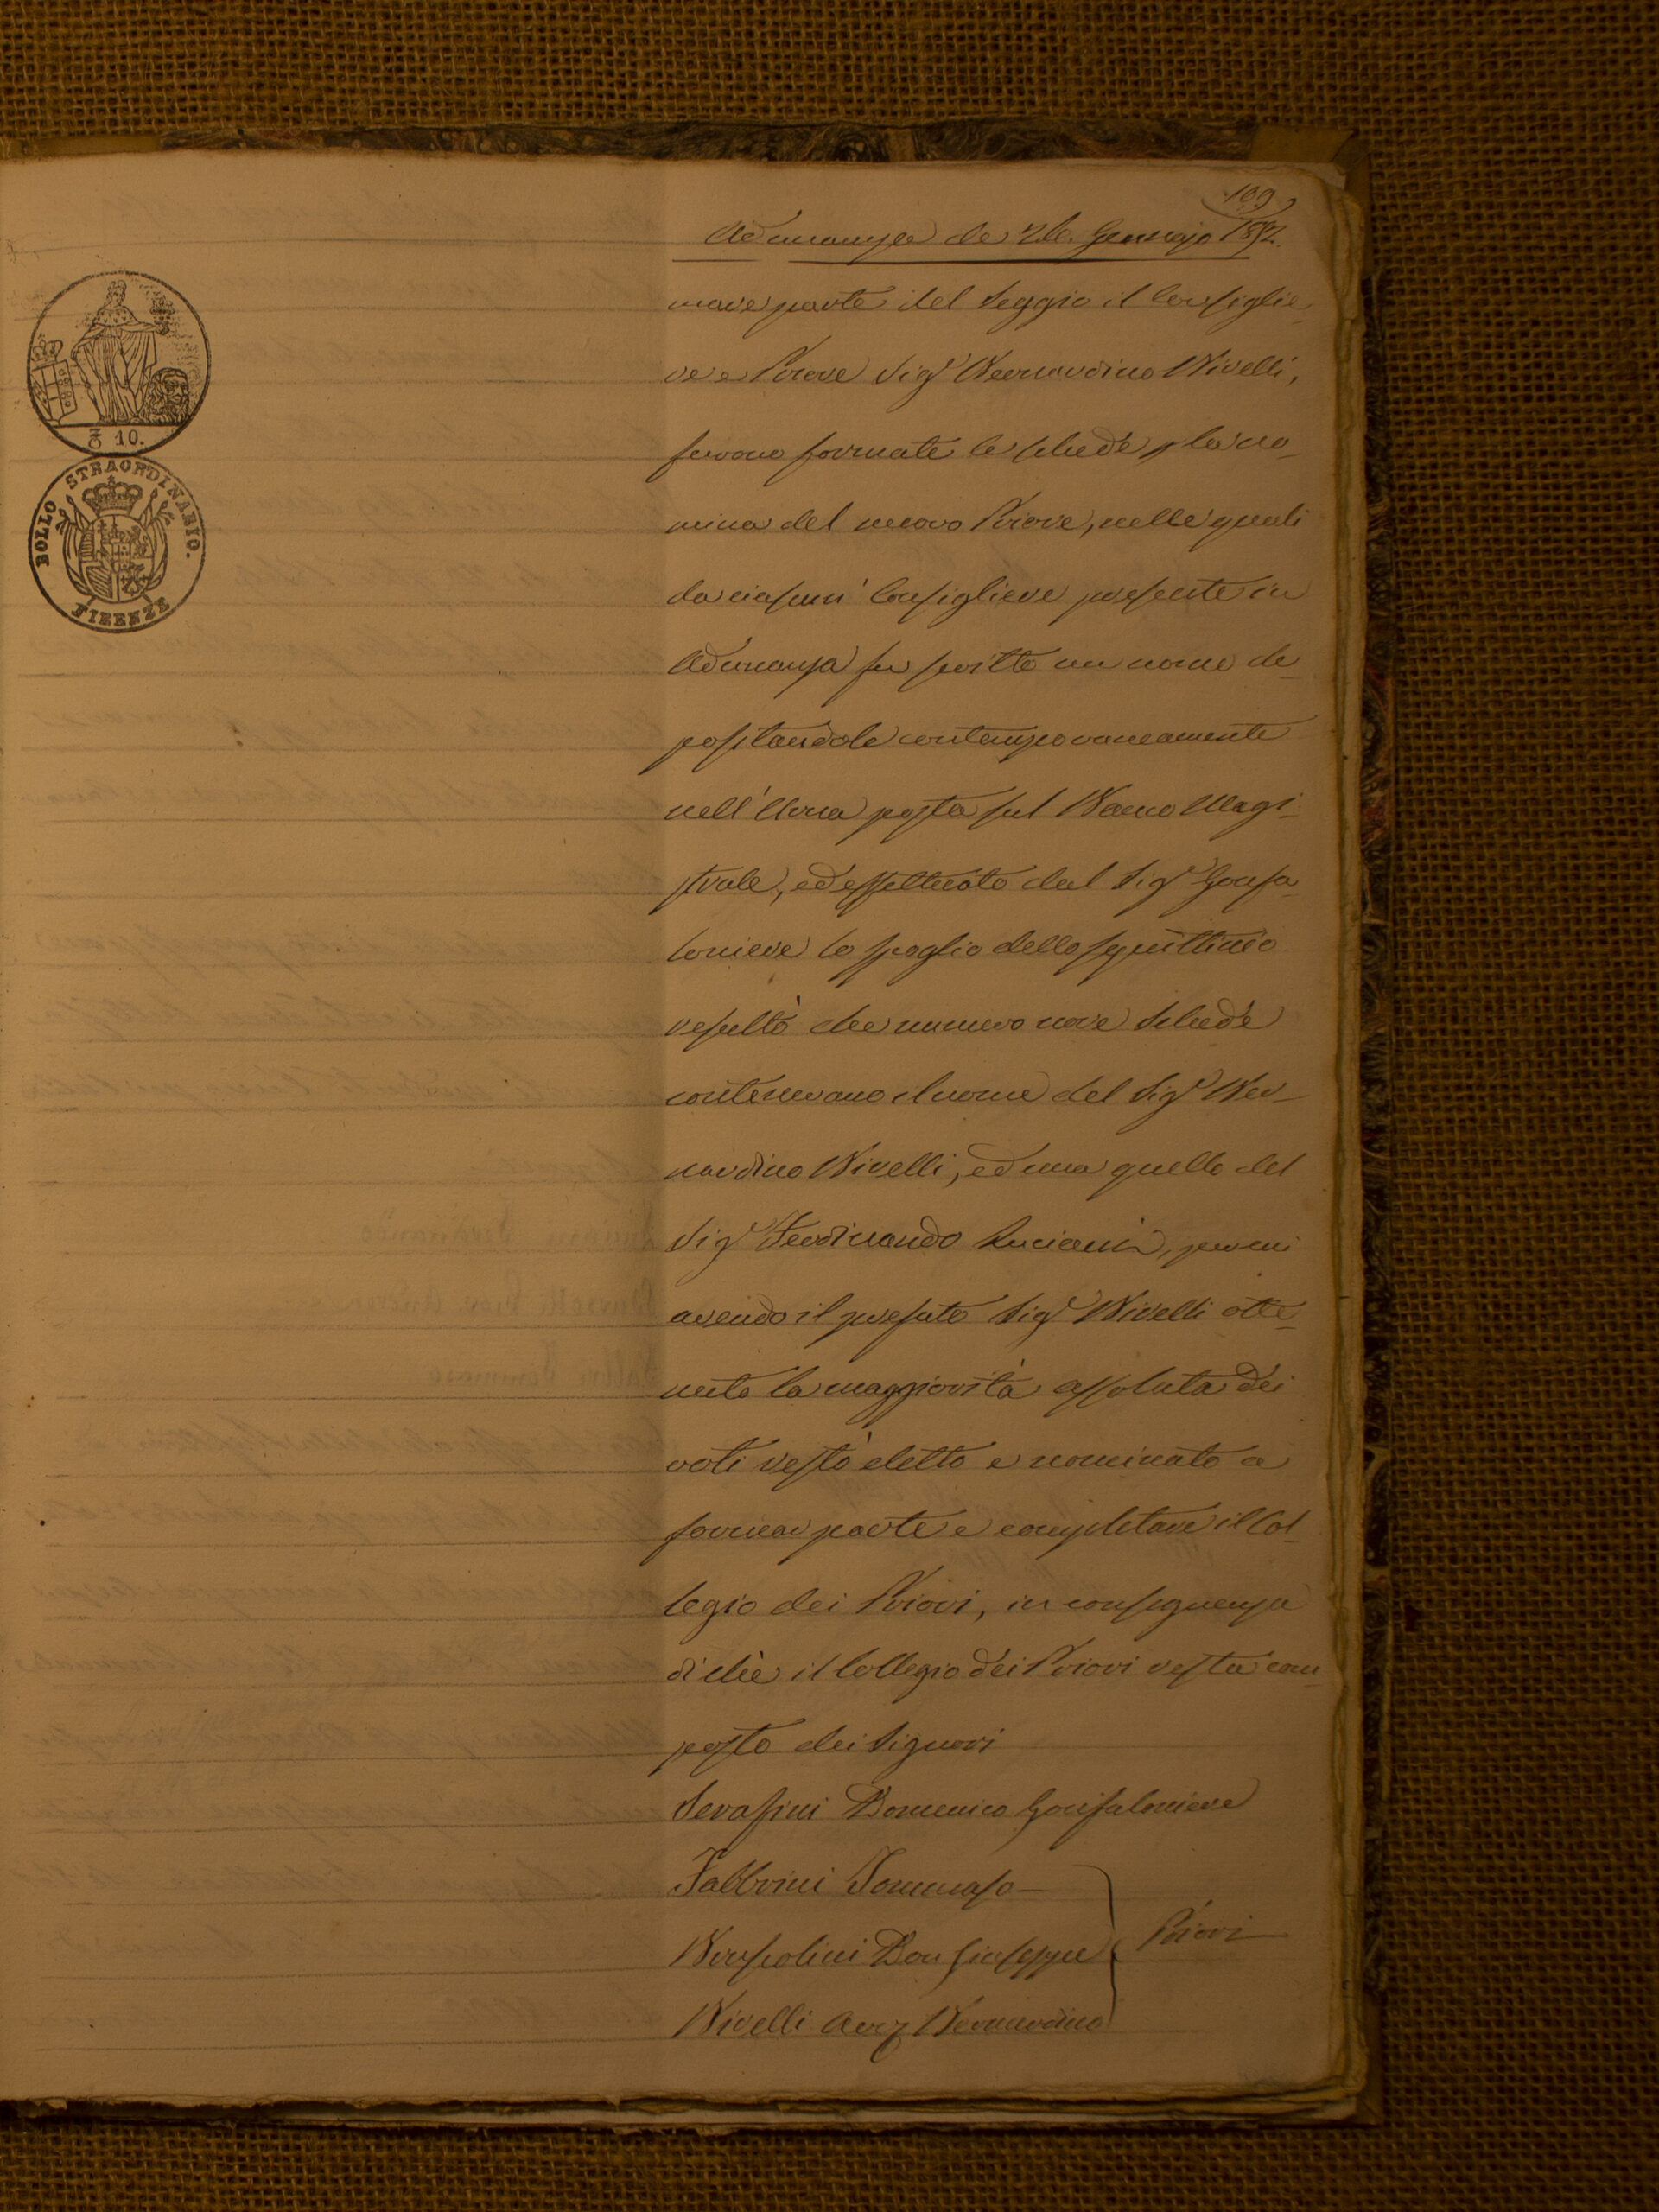 109
Adunanza de 26. Gennajo 1852.
mare parte del Seggio il Consiglie-
re e Priore Sig.r Bernardino Bivelli,
furono formate le schede p la no-
mina del nuovo Priore, nelle quali
da ciascun' Consigliere presente in
Adunanza fu scritto un nome de-
positandole contemporaneamente
nell'Urna posta sul Banco Magi-
strale, ed effettuato dal Sig.r Gonfa-
loniere lo spoglio dello squittinio
resultò che numero nove Schede
contenevano il nome del Sig.r Ber-
nardino Bivelli, ed una quello del
Sig.r Ferdinando Luciani, per cui
avendo il prefato Sig.r Bivelli otte-
nuto la maggiorità assoluta dei
voti restò eletto e nominato a
formar parte e completare il Col-
legio dei Priori, in conseguenza
di chè il Collegio dei Priori resta com-
posto dei Signori
Serafini Domenico Gonfaloniere
Fabbrini Tommaso
Bruscolini Don Giuseppe
Priori
Bivelli Bernardino
₢ 10.
BOLLO STRAORDINARIO.
FIRENZE